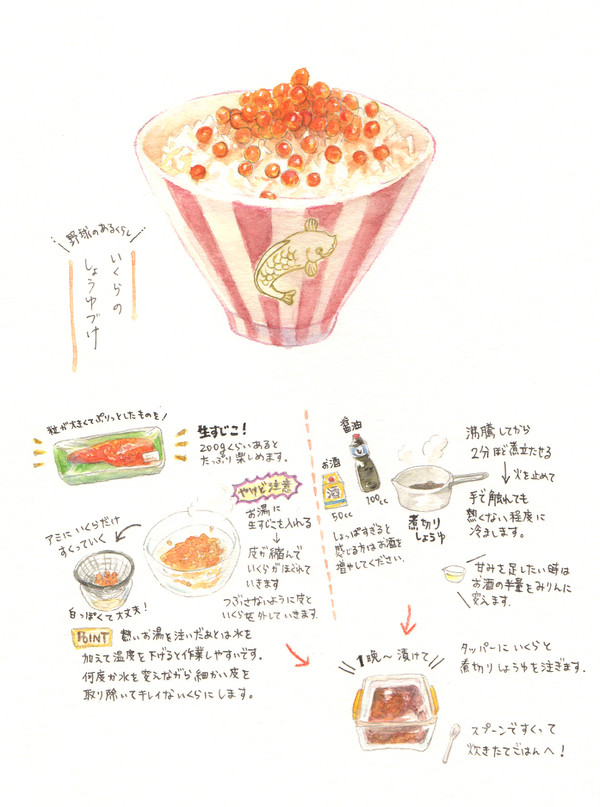 野球のあるくらし
いくらの
しょうゆづけ
粒が大きくてぷりっとしたものを!
生すじこ!
200gくらいあると
たっぷり楽しめます。
やけど注意
お湯に
生すじこを入れる
↓
皮が縮んで
いくらがほぐれて
いきます
つぶさないように皮と
いくらを外していきます。
アミにいくらだけ
すくっていく
白っぽくて大丈夫!
POINT 熱いお湯を注いだあとは水を
加えて温度を下げると作業しやすいです。
何度か水を変えながら細かい皮を
取り除いてキレイないくらにします。
醤油
お酒
酒
50cc
100cc
煮切り
しょうゆ
しょっぱすぎると
感じる方はお酒を
増やしてください。
沸騰してから
2分ほど煮立たせる
↓火を止めて
手で触れても
熱くない程度に
冷まします。
甘みを足したい時は
お酒の半量をみりんに
変えます。
1晩〜漬けて
タッパーにいくらと
煮切りしょうゆを注ぎます。
スプーンですくって
炊きたてごはんへ!